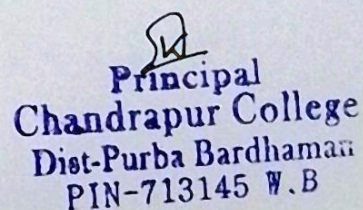 Principal
Chandrapur College
Dist-Purba Bardhaman
PIN-713145 W.B